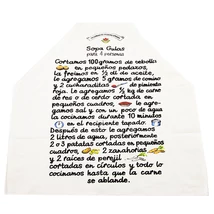 Sopa Gulas
para 4 personas
Cortamos 100 gramos de cebolla
en pequeños pedazos,
la freimos en ½ dl de aceite,
le agregamos 5 gramos de comino
y 2 cucharaditas de pimiento
rojo. Le agregamos ½ kg de carne
de res o de cerdo cortada en
pequeños cuadros, le agrega-
mos sal y con un poco de agua
la cocinamos durante 10 minutos
en el recipiente tapado.
Después de esto le agregamos
2 litros de agua, posteriormente
2 o 3 patatas cortadas en pequeños
cuadros, 2 zanahorias
y 2 raíces de perejil
cortadas en círculos y todo lo
cocinamos hasta que la carne
se ablande.